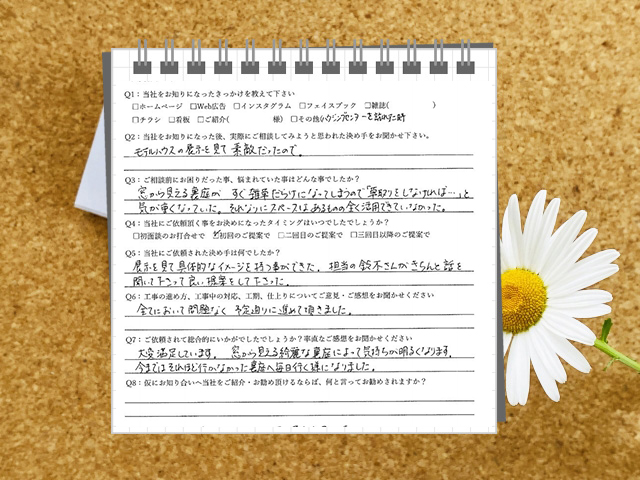 Q1：当社をお知りになったきっかけを教えて下さい
□ホームページ □Web広告 □インスタグラム □フェイスブック □雑誌( )
□チラシ □看板 □ご紹介( 様) □その他(ハウジングセンターを訪れた時
Q2：当社をお知りになった後、実際にご相談してみようと思われた決め手をお聞かせ下さい。
モデルハウスの展示を見て素敵だったので。
Q3：ご相談前にお困りだった事、悩まれていた事はどんな事でしたか？
窓から見える裏庭が すぐ雑草だらけになってしまうので「草取りをしなければ…」と
気が重くなっていた。それなりにスペースはあるものの全く活用できていなかった。
Q4：当社にご依頼頂く事をお決めになったタイミングはいつでしたでしょうか？
□初面談のお打合せで ☑初回のご提案で □二回目のご提案で □三回目以降のご提案で
Q5：当社にご依頼された決め手は何でしたか？
展示を見て具体的なイメージを持つ事ができた。担当の鈴木さんがきちんと話を
聞いて下さって良い提案をして下さった。
Q6：工事の進め方、工事中の対応、工期、仕上りについてご意見・ご感想をお聞かせください
全てにおいて問題なく 予定通りに進めて頂きました。
Q7：ご依頼されて総合的にいかがでしたでしょうか？率直なご感想をお聞かせください
大変満足しています。 窓から見える綺麗な裏庭によって気持ちが明るくなります。
今まではそれほど行かなかった裏庭へ毎日行く様になりました。
Q8：仮にお知り合いへ当社をご紹介・お勧め頂けるならば、何と言ってお勧めされますか？